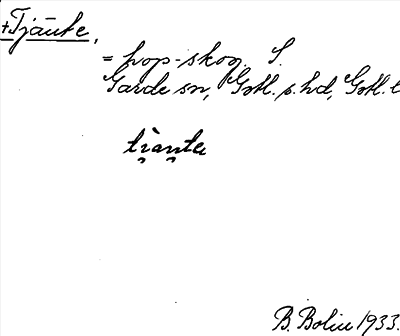 +Tjäute,
= hop-skog. S.
Garde sn, Gotl. s. hd, Gotl. l
B. Bolin 1933.